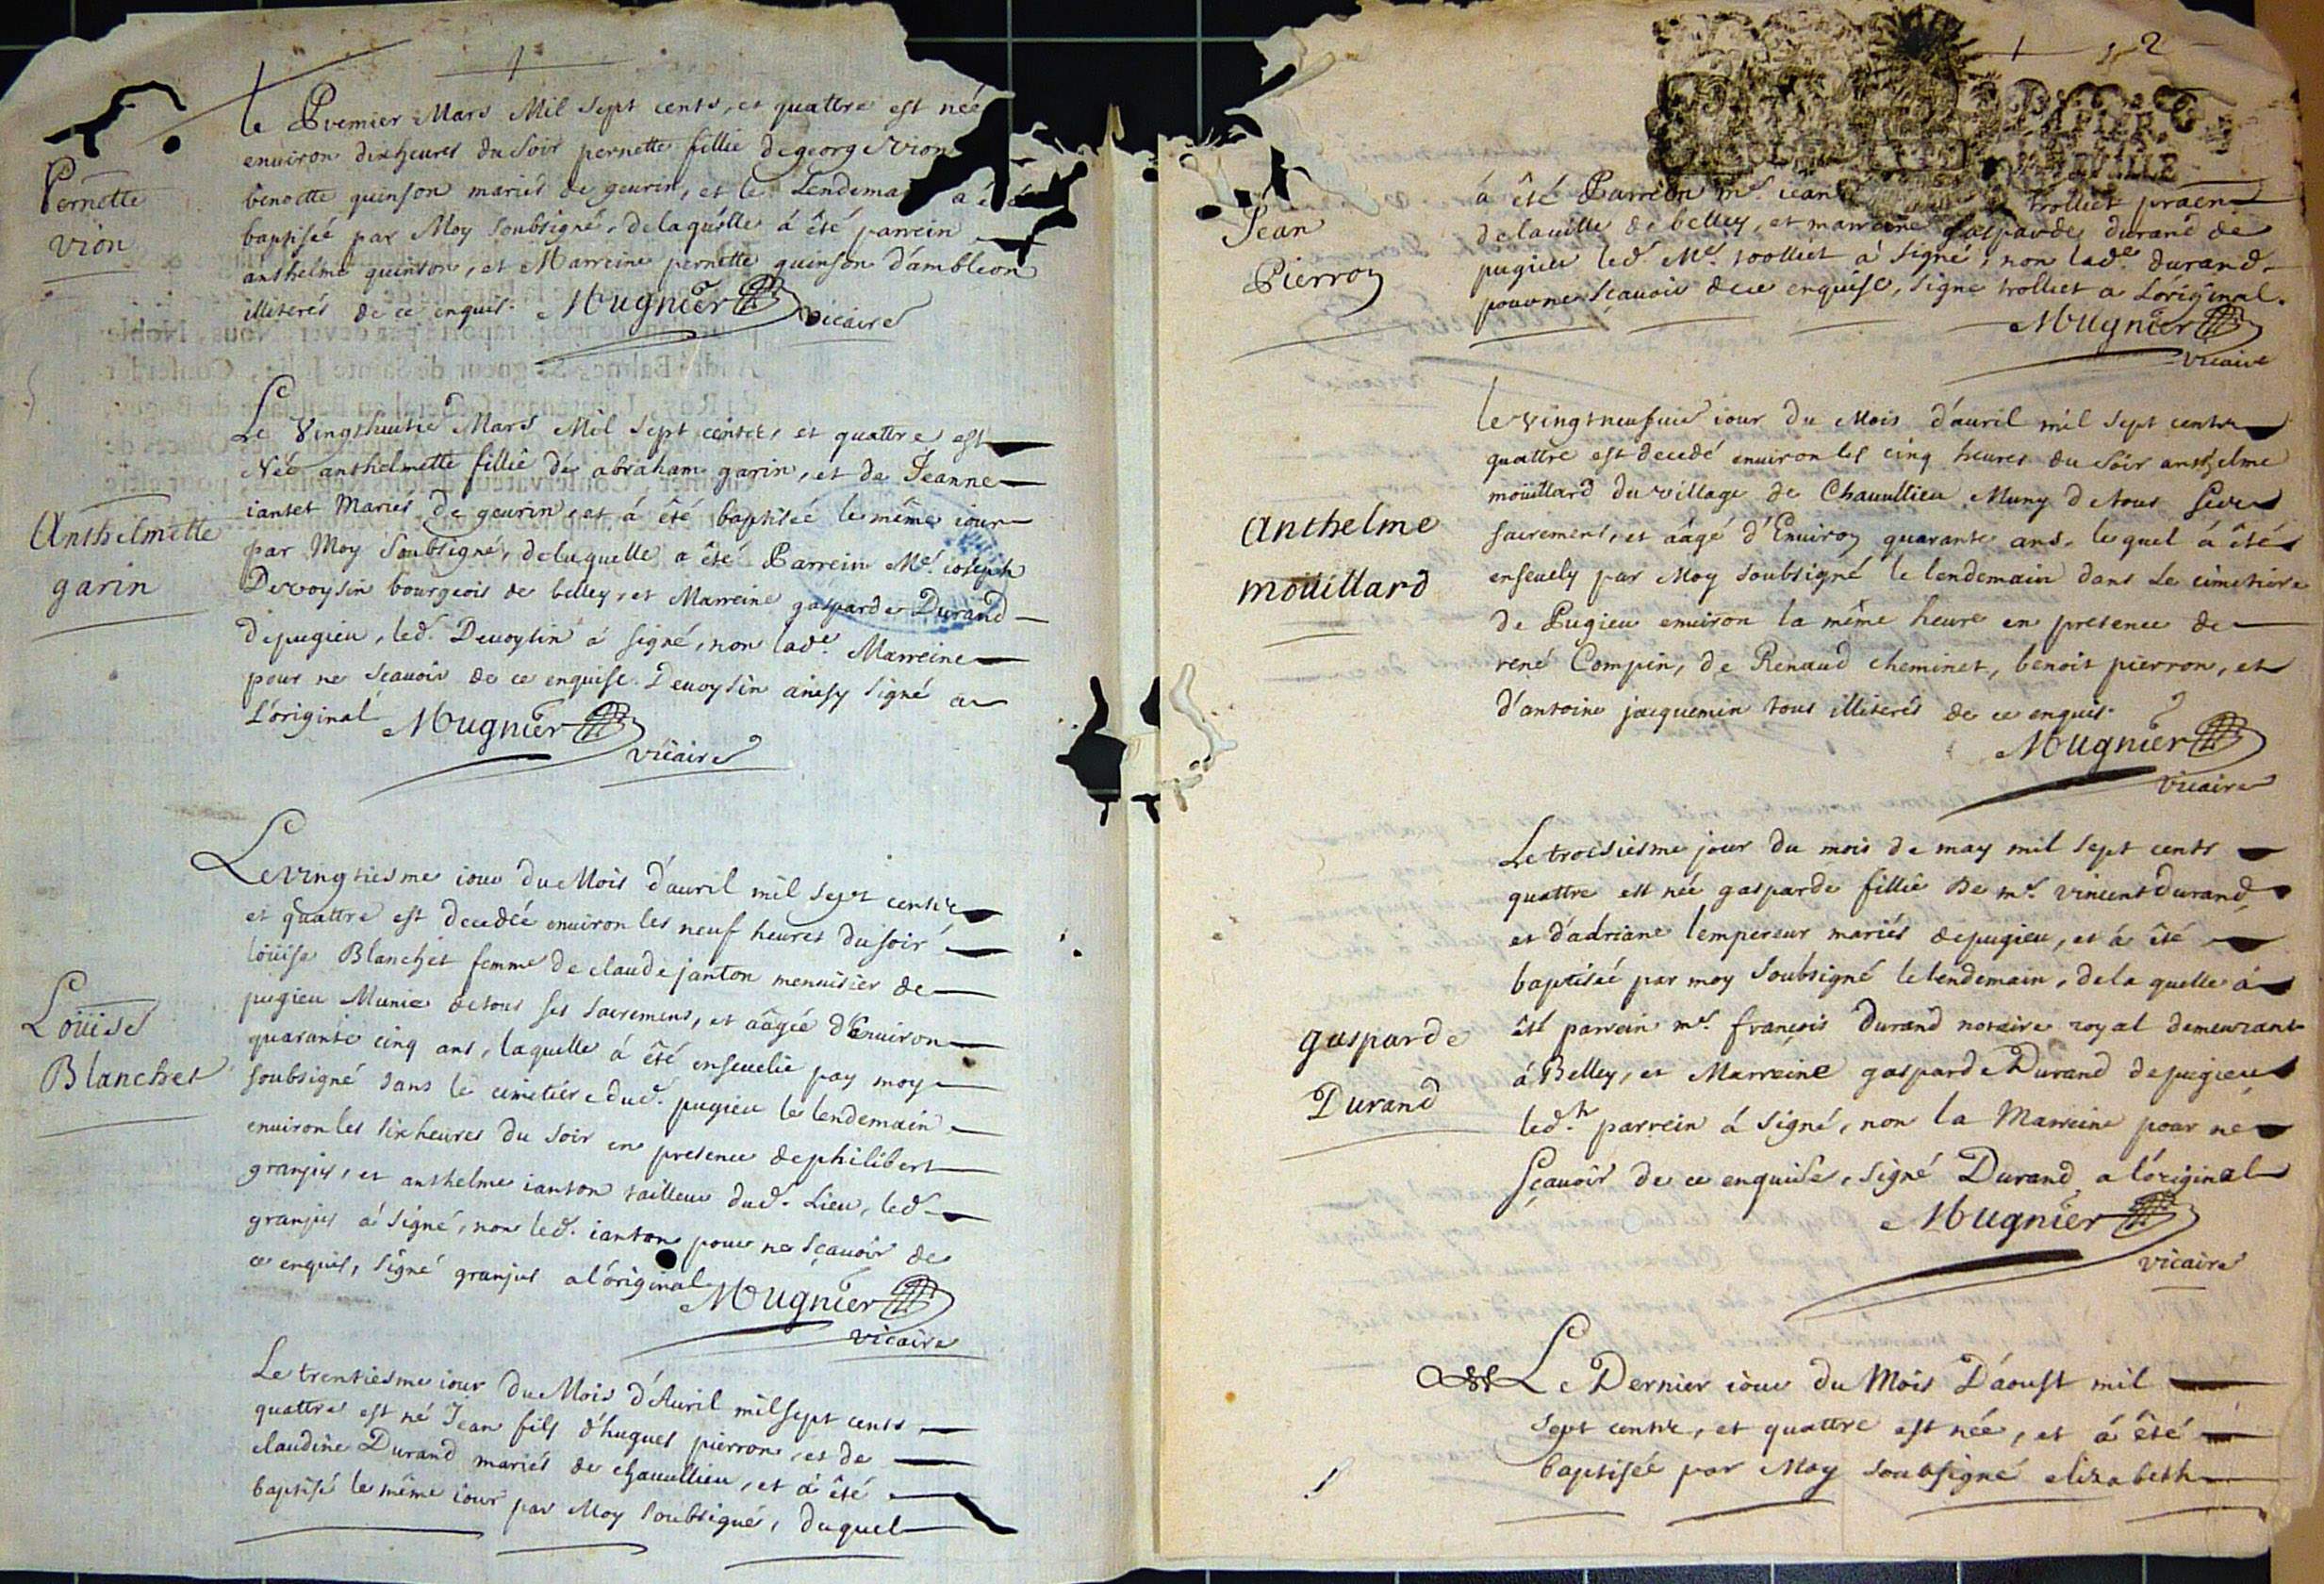 Pernette
vion
le Premier Mars Mil sept cents, et quattre est née
environ dix heures du soir pernette fillie de george vion
benoitte quinson mariés de geurin, et le Lendemain a été
baptisée par Moy soubsigné, de laquelle á êté parrein
anthelme quinson, et Marreine pernette quinson d'ambleon
illiterés de ce enquis. Mugnier
vicaire
Anthelmette
garin
Le Vingthuitie Mars Mil sept cents, et quattre est
Née anthelmette fillie de abraham garin, et de Jeanne
iantet Mariés de geurin, et á êté baptiseé le même iour
par Moy soubsigné, de laquelle a êté Parrein Me. ioseph
Devoysin bourgeois de belley, et Marreine gasparde Durand
de pugieu, led. Devoysin á signé, non lade. Marreine
pour ne scavoir de ce enquise. Devoysin ainsy signé a
L'original Mugnier
vicaire
Loüise
Blanchet
Le vingtiesme iour du Mois d'avril mil sept cents
et quattre est decedée environ les neuf heures du soir
loüise Blanchet femme de claude janton menuisier de
pugieu Munie de tous ses sacremens, et ââgée d'Environ
quarante cinq ans, laquelle á êté ensevelie pay moy
soubsigné dans le cimetiére dud. pugieu le lendemain
environ les six heures du soir en presence de philibert
granjus, et anthelme ianton tailleur dud. Lieu, led.
granjus á signé, non led. ianton pour ne sçavoir de
ce enquis, signé granjus a l'original Mugnier
vicaire
Le trentiesme iour du Mois d'Avril mil sept cents
quattre est né Jean fils d'hugues pierron, et de
claudine Durand mariés de chavullieu, et á êté
baptisé le même iour par Moy soubsigné, duquel
2
Jean
Pierron
á êté Parrein me. iean trolliet praen
de la ville de belley, et marreine gasparde durand de
pugieu led. Me. trolliet á signé, non lade. durand
pour ne sçavoir de ce enquise, signé trolliet a L'original.
Mugnier
vicaire
Anthelme
moüillard
le vingtneufuie iour du Mois d'avril mil sept cents
quattre est decedé environ les cinq heures du soir anthelme
moüillard du village de Chavullieu Muny de tous ses
sacremens, et âágé d'Environ quarante ans, lequel á êté
ensevely par Moy soubsigné le lendemain dans Le cimetiére
de Pugieu environ la même heure en presence de
rené Compin, de Renaud cheminet, benoit pierron, et
d'antoine jacquemin tous illiterés de ce enquis.
Mugnier
vicaire
gasparde
Durand
Le troisiesme jour du mois de may mil sept cents
quattre est née gasparde fillie De me. vincent Durand
et d'adriane lempereur mariés de pugieu, et á êté
baptisée par moy soubsigné le lendemain, de la quelle á
êté parrein me. françois Durand notaire royal demeurant
á Belley, et Marreine gasparde Durand de pugieu
led. parrein á signé, non la Marreine pour ne
sçavoir de ce enquise, signé Durand a l'original
Mugnier
vicaire
Le Dernier iour du Mois D'aoust mil
sept cents, et quattre est née, et á êté
baptisée par Moy soubsigné elizabeth